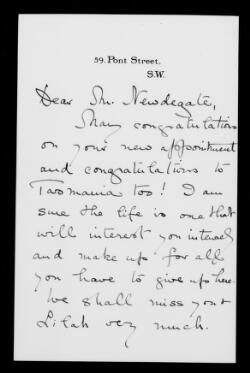 59. Pont Street.
S.W.
Dear Mr. Newdegate,
Many congratulations
on your new appointment
and congratulations to
Tasmania too! I am
sure the life is one that
will interest you intensely
and make up for all
you have to give up here.
We shall miss you &
Lilah very much.